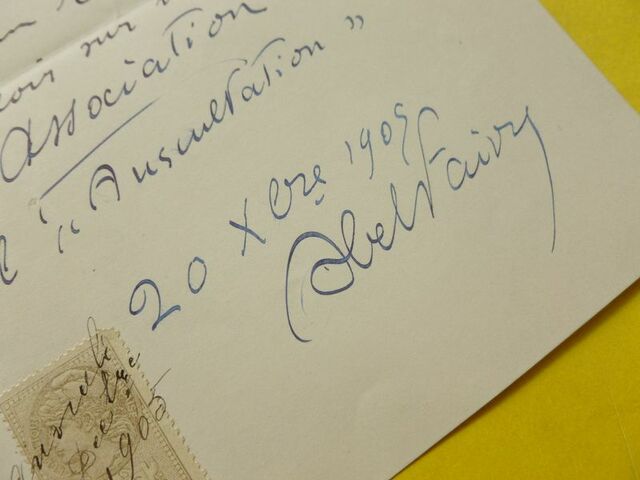 sur
Association
" Auscultation "
20 Xbre 1905
Abel Faivre
1905